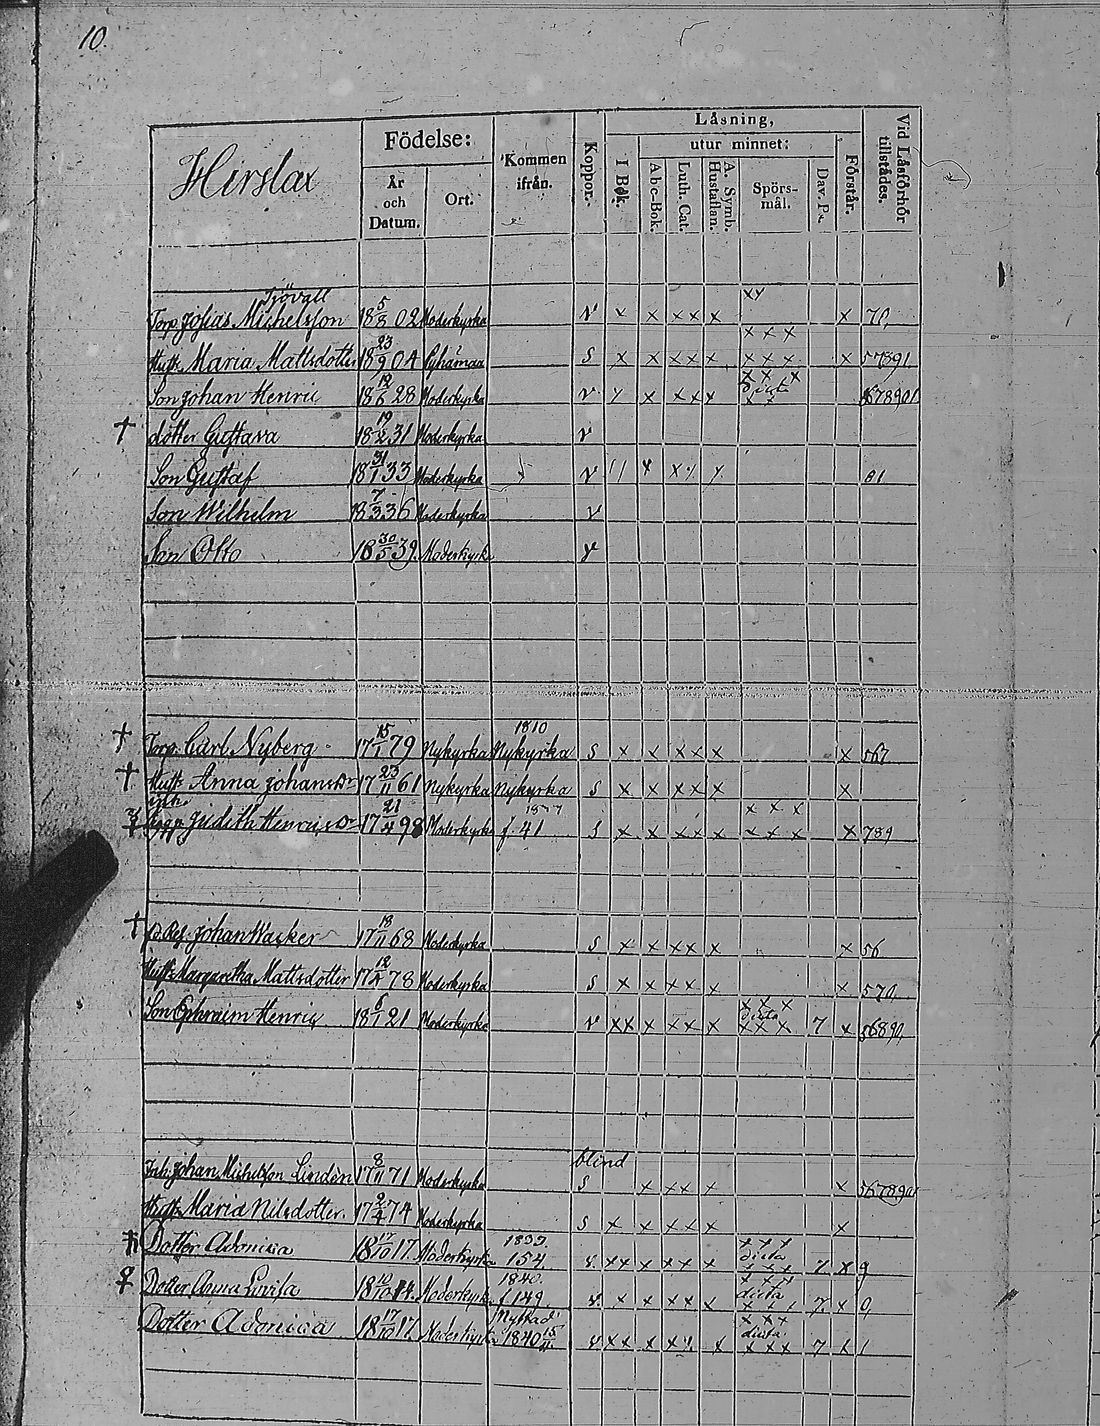 10.
Hirslax
Födelse:
År
och
Datum.
Ort.
Kommen
ifrån.
Koppor.
Läsning,
I Bok.
utur minnet:
Abc-Bok.
Luth. Cat.
A. Symb.
Hustaflan.
Spörs-
mål.
Dav. Ps.
Förstår.
Vid Läsförhör
tillstädes.
Sjövall
Torp. Josias Michelsson 18 5/8 02 Moderkyrka v x x xxx x x
Hust. Maria Mattsdotter 18 23/9 04 Pyhämaa s x x xxx x xxx x 57891
Son Johan Henric 18 12/6 28 Moderkyrka v x xxx
† dotter Gustava 18 19/2 31 Moderkyrka v
Son Gustaf 18 31/1 33 Moderkyrka v 81
Son Wilhelm 18 7/3 36 Moderkyrka v
Son Otto 18 30/5 39 Moderkyrk v
1810
† Torp. Carl Nyberg 17 15/1 79 Nykyrka Nykyrka s x x xxx x x 567
† Hust. Anna Johansdr 17 23/11 61 Nykyrka Nykyrka s x x xxx x x
Judith Henricsdr 17 21/4 98 Moderkyrka f. 41 s x x xxx x xxx x 789
† Johan Wacker 17 18/11 68 Moderkyrka s x x xxx x x 56
Hust. Margaretha Mattsdotter 17 12/2 78 Moderkyrka s x x xxx x x 570,
Son Ephraim Henric 18 6/1 21 Moderkyrka v xx x xxx x dicta xxx 7 x 56890,
blind
Inh. Johan Michelsson Lindén 17 8/11 71 Moderkyrka s x xxx x x 5678901
Hust. Maria Nilsdotter. 17 2/4 74 Moderkyrka s x x xxx x x
1839
Dotter Adonica 18 17/10 17 Moderkyrka 154 xx x xxx x dicta xxx 7 x 9
1840.
Dotter Anna Lovisa Moderkyrk f 149 x x xxx x dicta 7 x 0,
Dotter Adonica 18 17/10 17 Moderkyrka 1840 xx x x dicta xxx 7 x 1